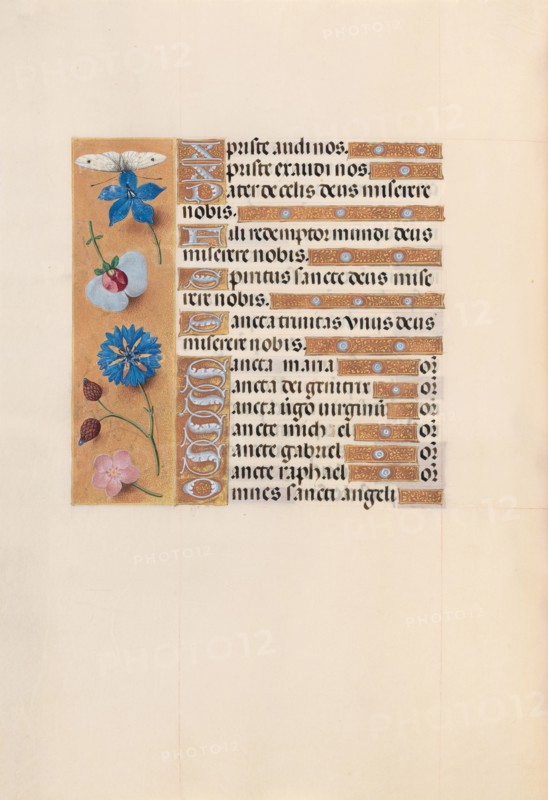 Xpriste audi nos.
Xpriste exaudi nos.
Pater de celis deus miserere
nobis.
Fili redemptor mundi deus
miserere nobis.
Spiritus sancte deus mise
rere nobis.
Sancta trinitas vnus deus
miserere nobis.
Sancta maria or
Sancta dei genitrix or
Sancta uirgo uirginu or
Sancte michael or
Sancte gabriel or
Sancte raphael or
Omnes sancti angeli
PHOTO12
PHOTO12
PHOTO12
PHOTO12
PHOTO12
PHOTO12